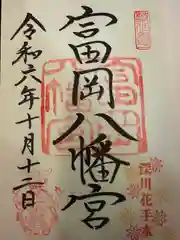 富岡八幡宮
令和六年十月十二日
深川花手水